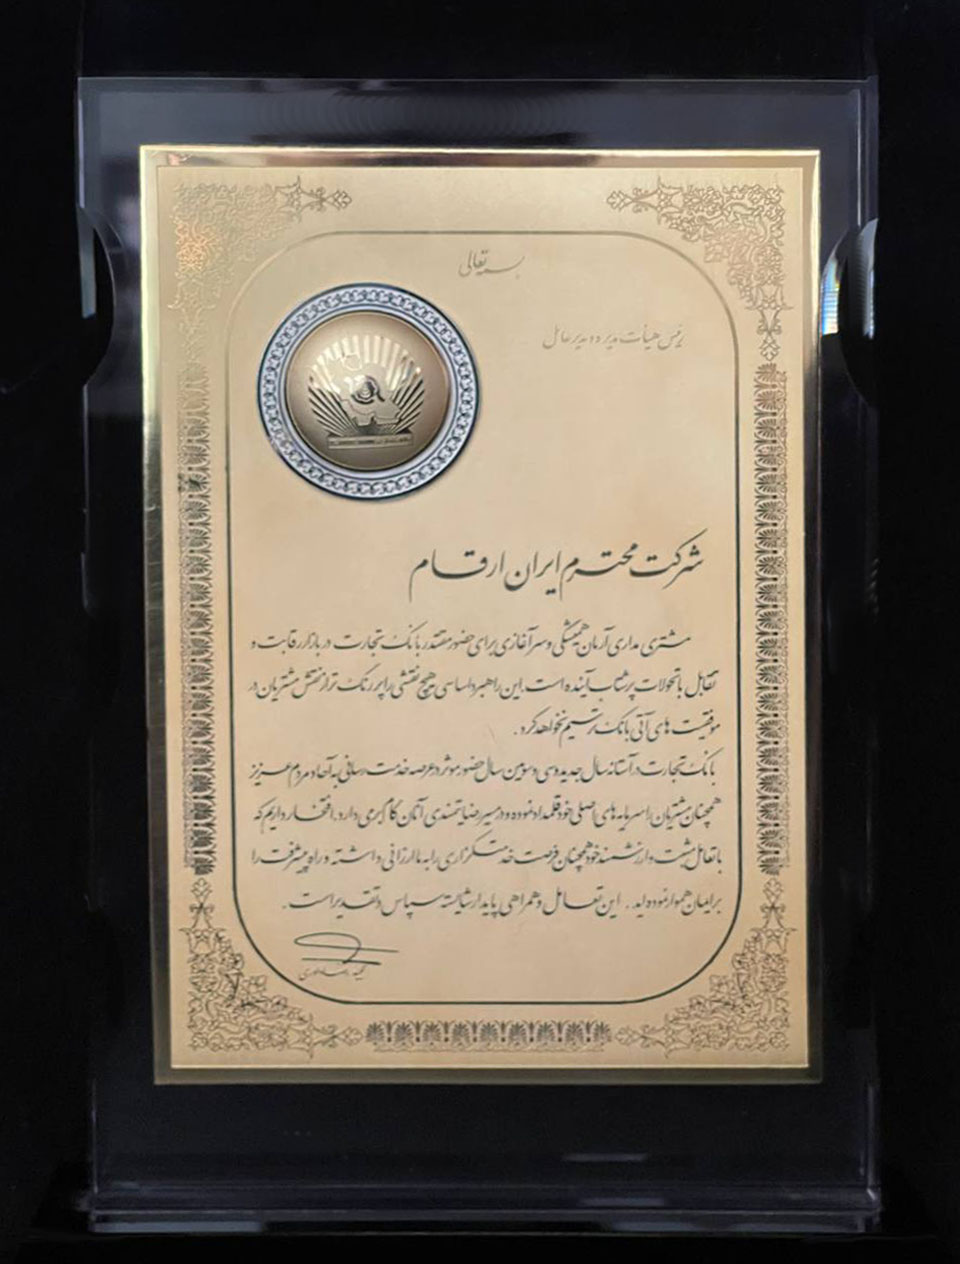 بسمه تعالی
رئیس هیأت مدیره و مدیرعامل
شرکت محترم ایران ارقام
مشتری مداری آرمان همیشگی و سرآغازی برای حضور مقتدر بانک تجارت در بازار رقابت و
تقابل با تحولات پرشتاب آینده است. این راهبرد اساسی هیچ نقشی را پررنگ تر از نقش مشتریان در
موفقیت های آتی بانک ترسیم نخواهد کرد.
بانک تجارت در آستانه سال جدید و سی و سومین سال حضور موثر در عرصه خدمت رسانی به آحاد مردم عزیز
همچنان مشتریان را سرمایه های اصلی خود قلمداد نموده و در مسیر رضایتمندی آنان گام برمی دارد. افتخار داریم که
با تعامل مثبت و ارزشمند خود همچنان فرصت خدمتگزاری را به ما ارزانی داشته و راه پیشرفت را
برایمان هموار نموده اید. این تعامل و همراهی پایدار شایسته سپاس و تقدیر است.